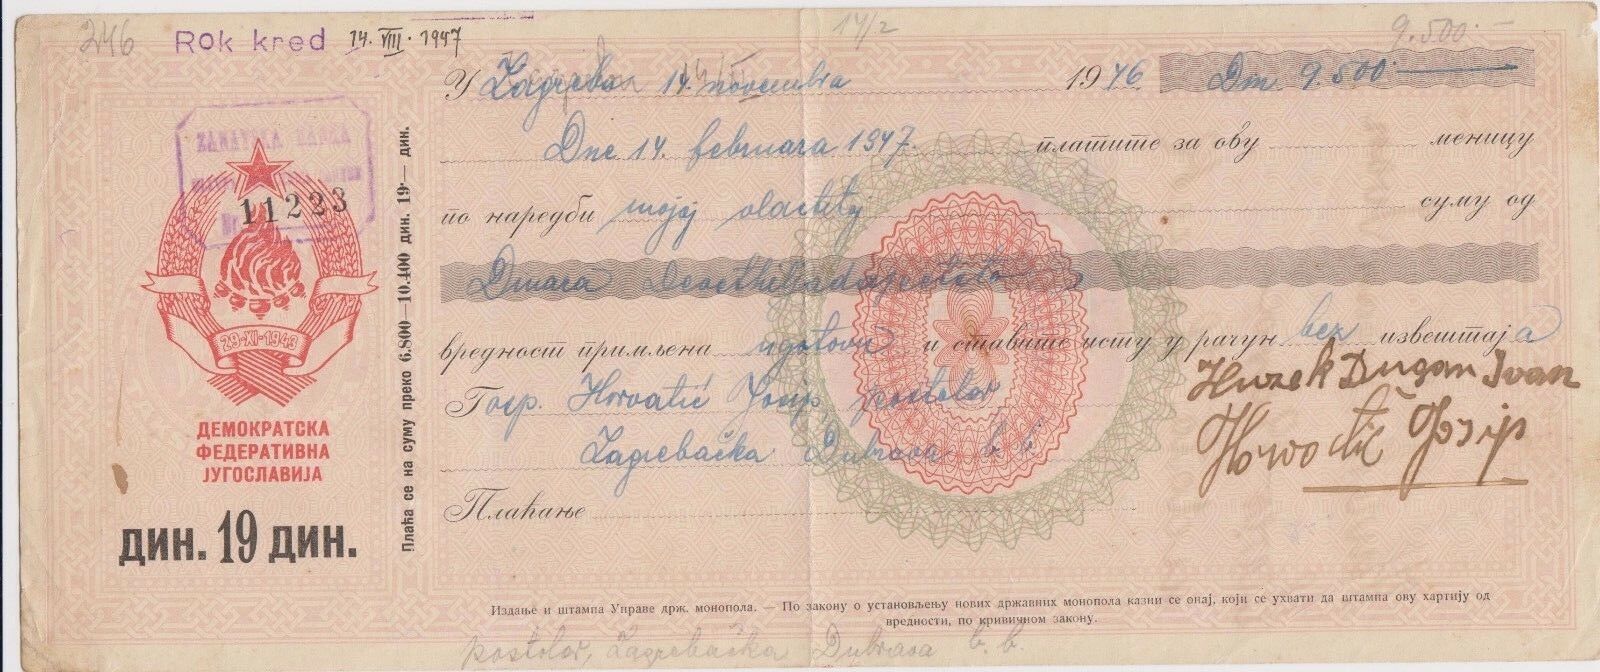 246 Rok kred 14. VIII. 1947 14/2 9.500.—
У Zagrebu 14. novembra 1946 Din 9.500.—
Dne 14. februara 1947. платите за ову меницу
по наредби mojoj vlastitoj суму од
Dinara Devethiljadapetsto
вредност примљена u gotovu и ставите исту у рачун bez извештаја
Госп. Horvatić Josip postolar
Zagrebačka Dubrava b. b.
Плаћање
Ivan
Horvatić Josip
11223
29-XI-1943
ДЕМОКРАТСКА
ФЕДЕРАТИВНА
ЈУГОСЛАВИЈА
ДИН. 19 ДИН.
Плаћа се на суму преко 6.800—10.400 дин. 19·— дин.
Издање и штампа Управе држ. монопола. — По закону о установљењу нових државних монопола казни се онај, који се ухвати да штампа ову хартију од
вредности, по кривичном закону.
postolar, Zagrebačka Dubrava b. b.